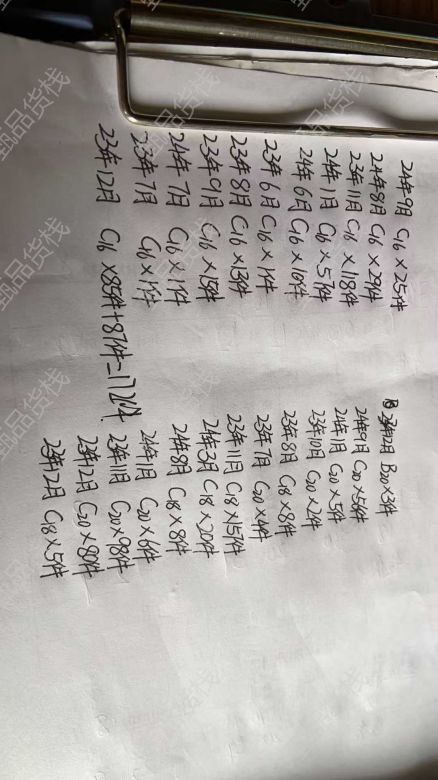 24年9月 C16×25件
24年8月 C16×29件
23年11月 C16×118件
24年1月 C16×57件
24年6月 C16×10件
23年6月 C16×1件
23年8月 C16×13件
23年9月 C16×15件
24年7月 C16×1件
23年7月 C16×1件
23年12月 C16×85件+87件=172件
B20×3件
24年9月 C20×56件
24年1月 C20×5件
23年10月 C20×2件
23年8月 C18×8件
23年7月 C20×4件
23年11月 C18×157件
24年3月 C18×20件
24年8月 C18×8件
24年1月 C20×6件
23年11月 C20×98件
23年12月 C20×80件
23年12月 C18×5件
甄品货栈